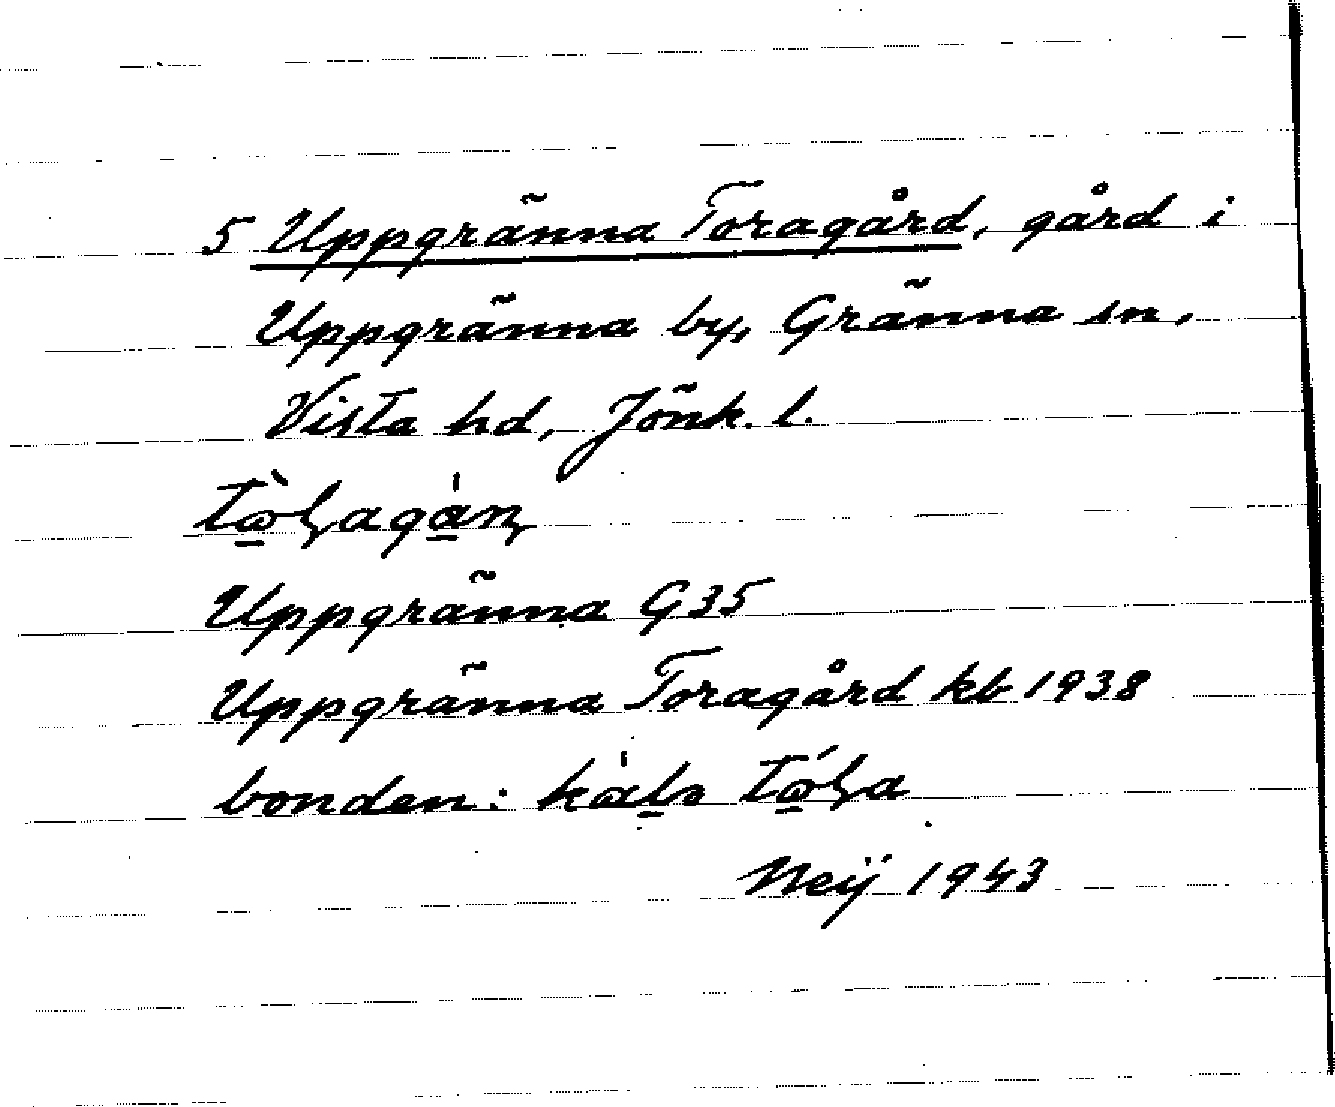 5 Uppgränna Toragård, gård i
Uppgränna by, Gränna sn,
Vista hd, Jönk. l.
Uppgränna G35
Uppgränna Toragård kb 1938
bonden:
Neij 1943